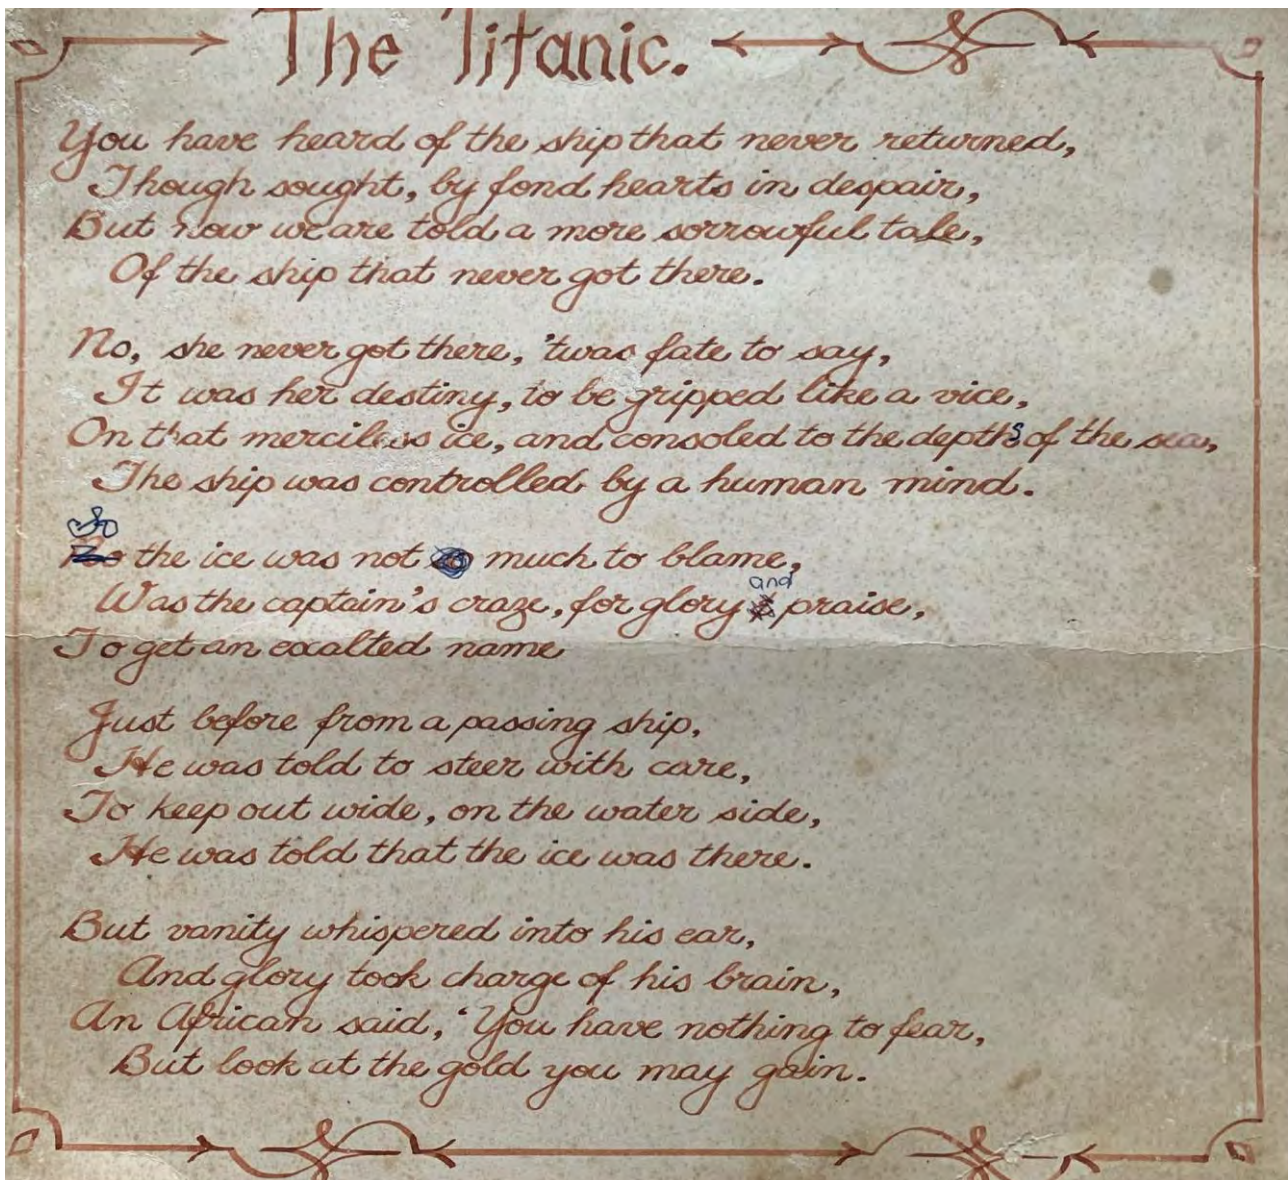 The Titanic.
You have heard of the ship that never returned,
Though sought, by fond hearts in despair,
But now we are told a more sorrowful tale,
Of the ship that never got there.
No, she never got there, 'twas fate to say,
It was her destiny, to be gripped like a vice,
On that merciless ice, and consoled to the depths of the sea,
The ship was controlled by a human mind.
So
the ice was not much to blame,
and
Was the captain's craze, for glory praise,
To get an exalted name
Just before from a passing ship,
He was told to steer with care,
To keep out wide, on the water side,
He was told that the ice was there.
But vanity whispered into his ear,
And glory took charge of his brain,
An African said, 'You have nothing to fear,
But look at the gold you may gain.